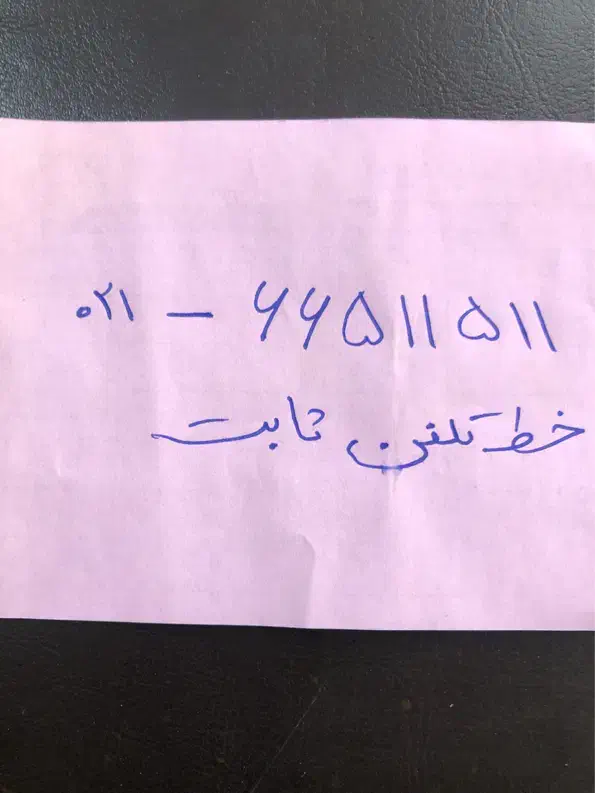 ۰۲۱ - ۶۶۵۱۱۵۱۱
خط تلفن ثابت